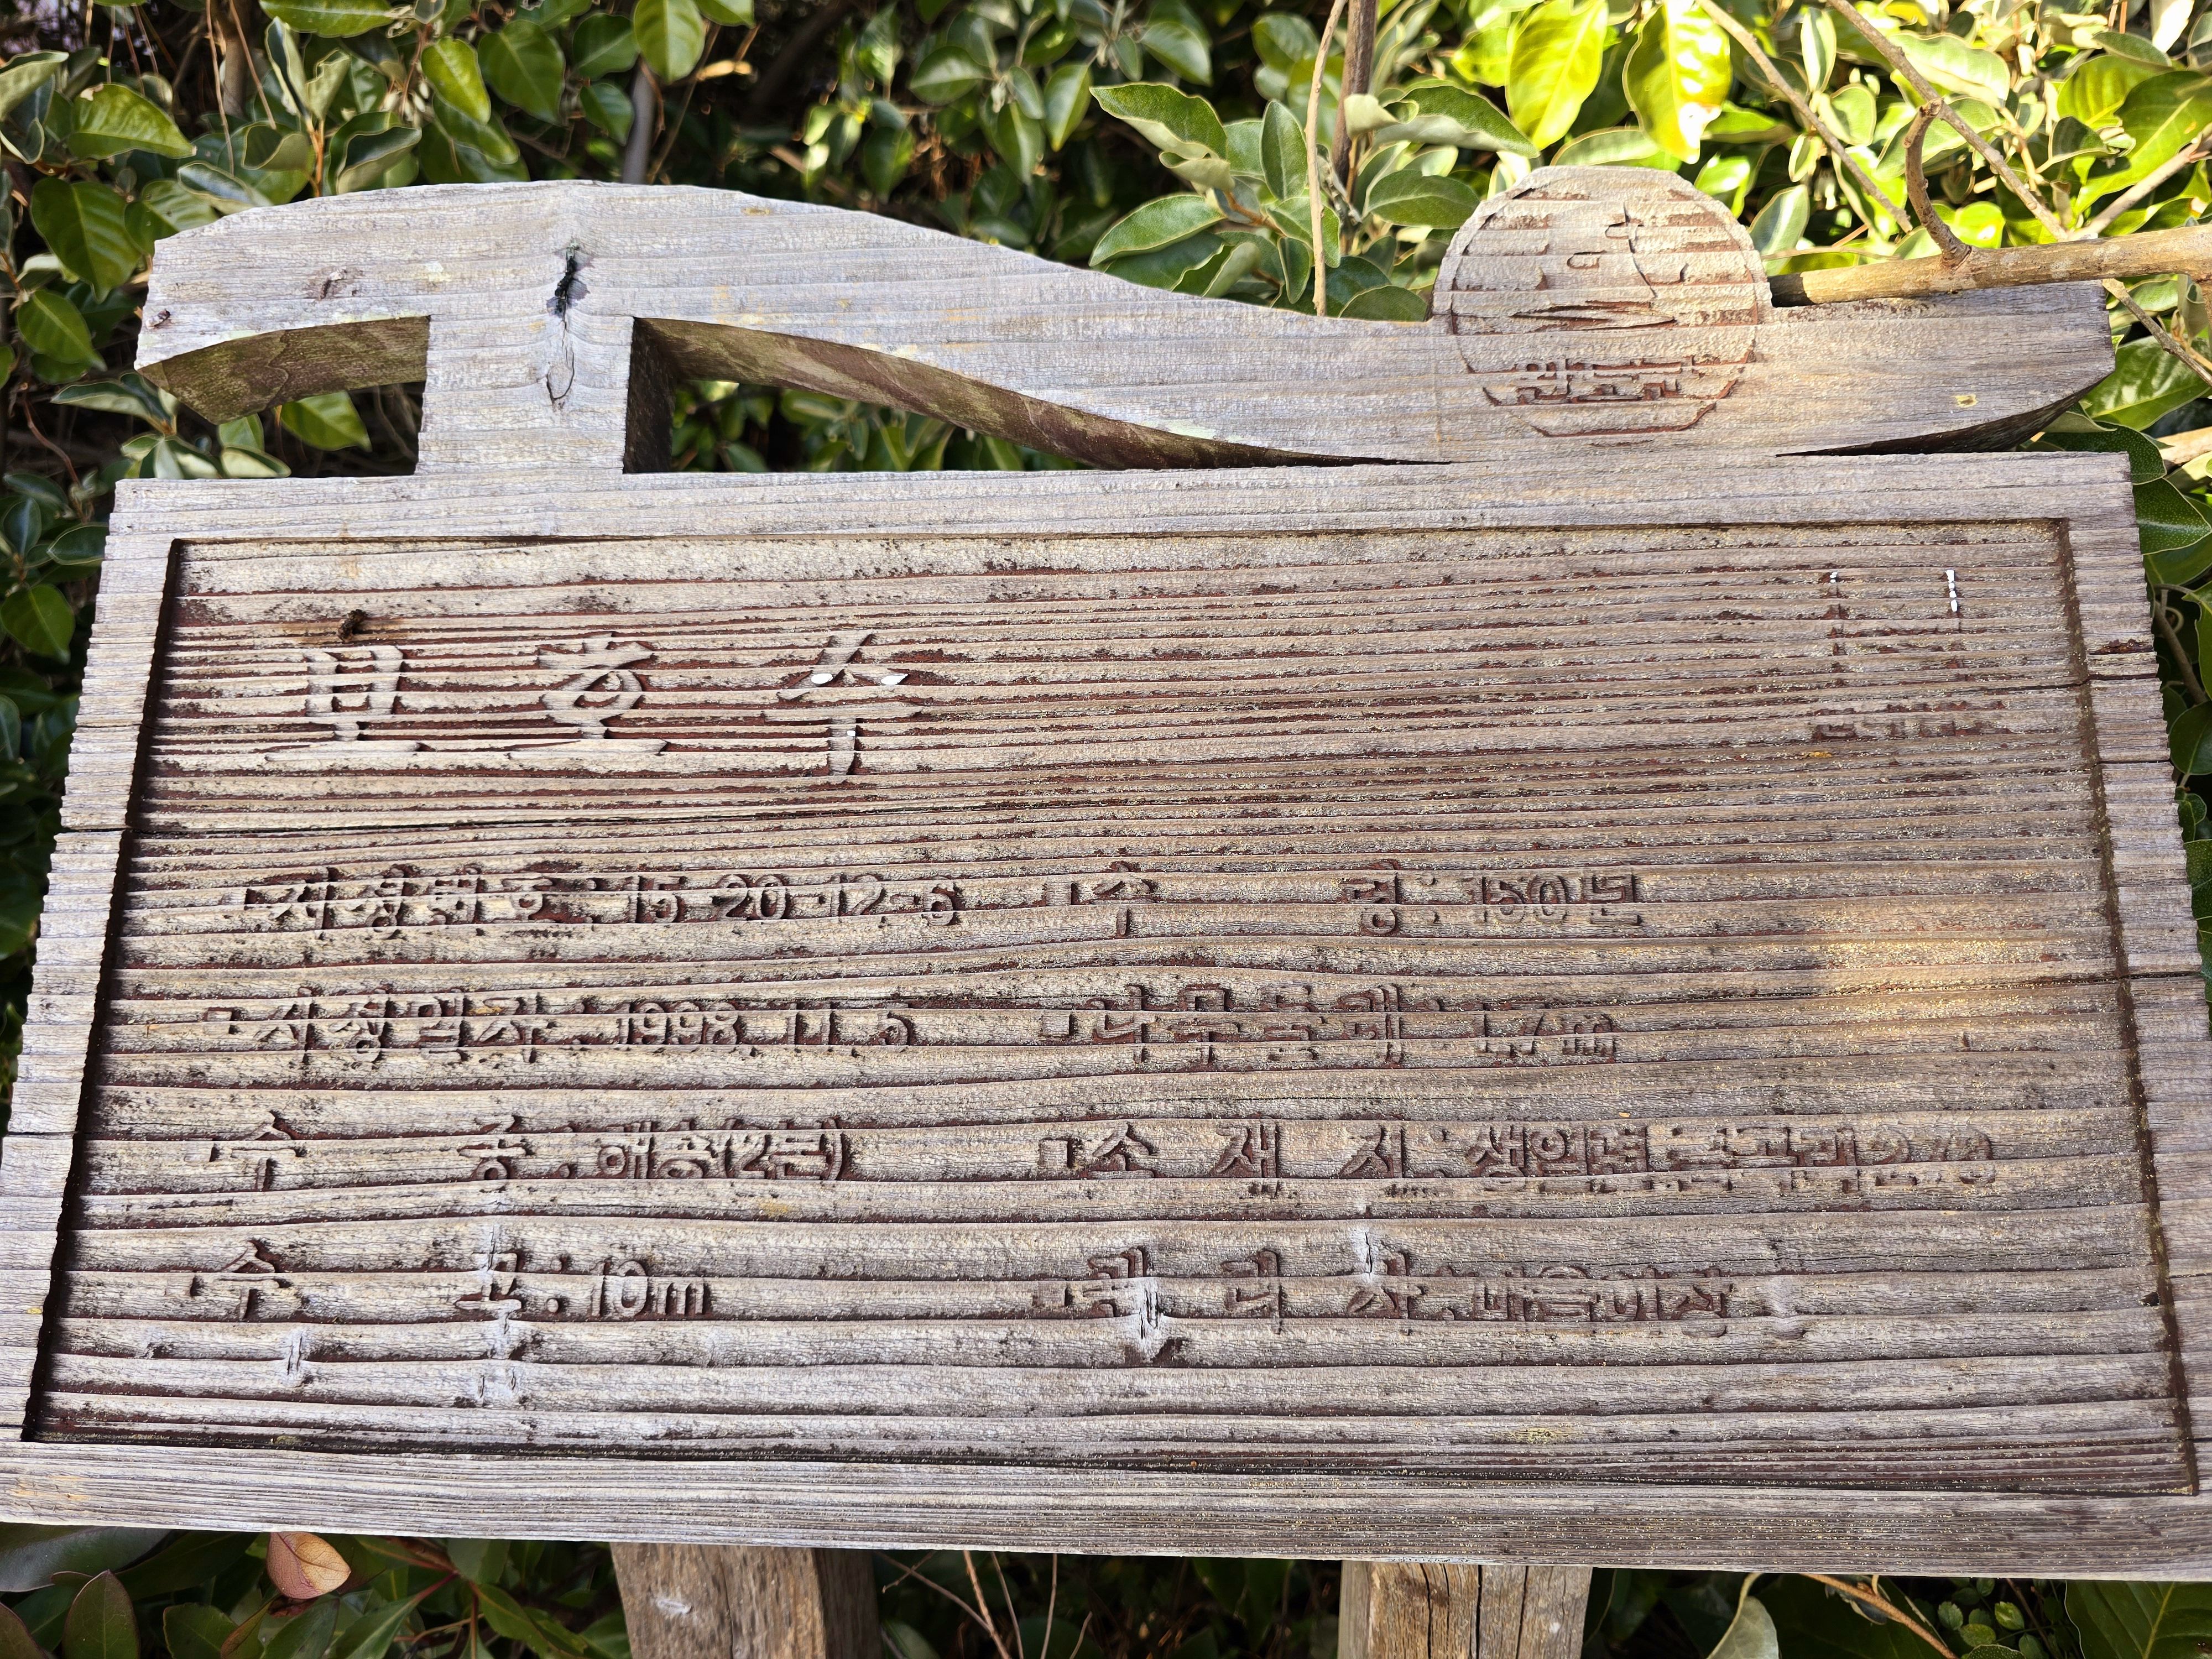 보호수
·지정번호 : 15-20-12-6
·지정일자 : 1998. 11. 5
수 종 :
수 고 : 10m
·수 령 : 150년
·나무둘레 : 1.7m
·소 재 지 : 생일면
·관 리 자 : 마을이장